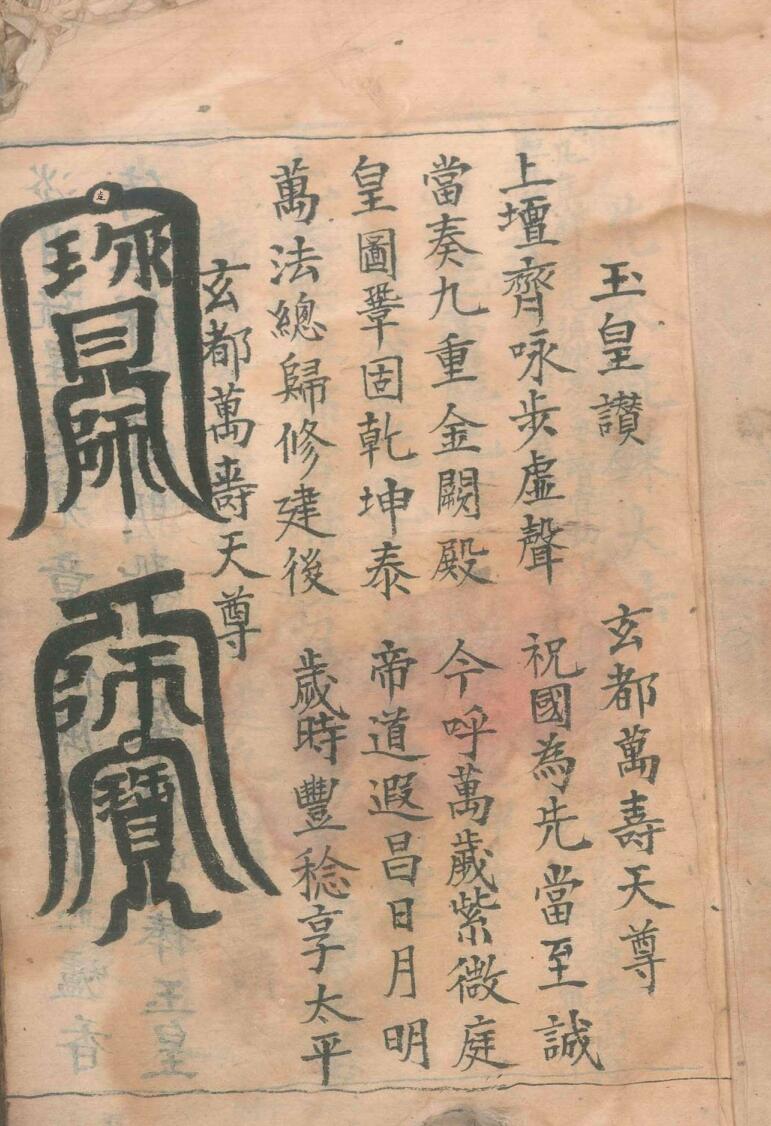 玉皇讚 玄都萬壽天尊
上壇齊咏步虛聲 祝國為先當至誠
當奏九重金闕殿 今呼萬歲紫微庭
皇圖鞏固乾坤泰 帝道遐昌日月明
萬法總歸修建後 歲時豐稔享太平
玄都萬壽天尊